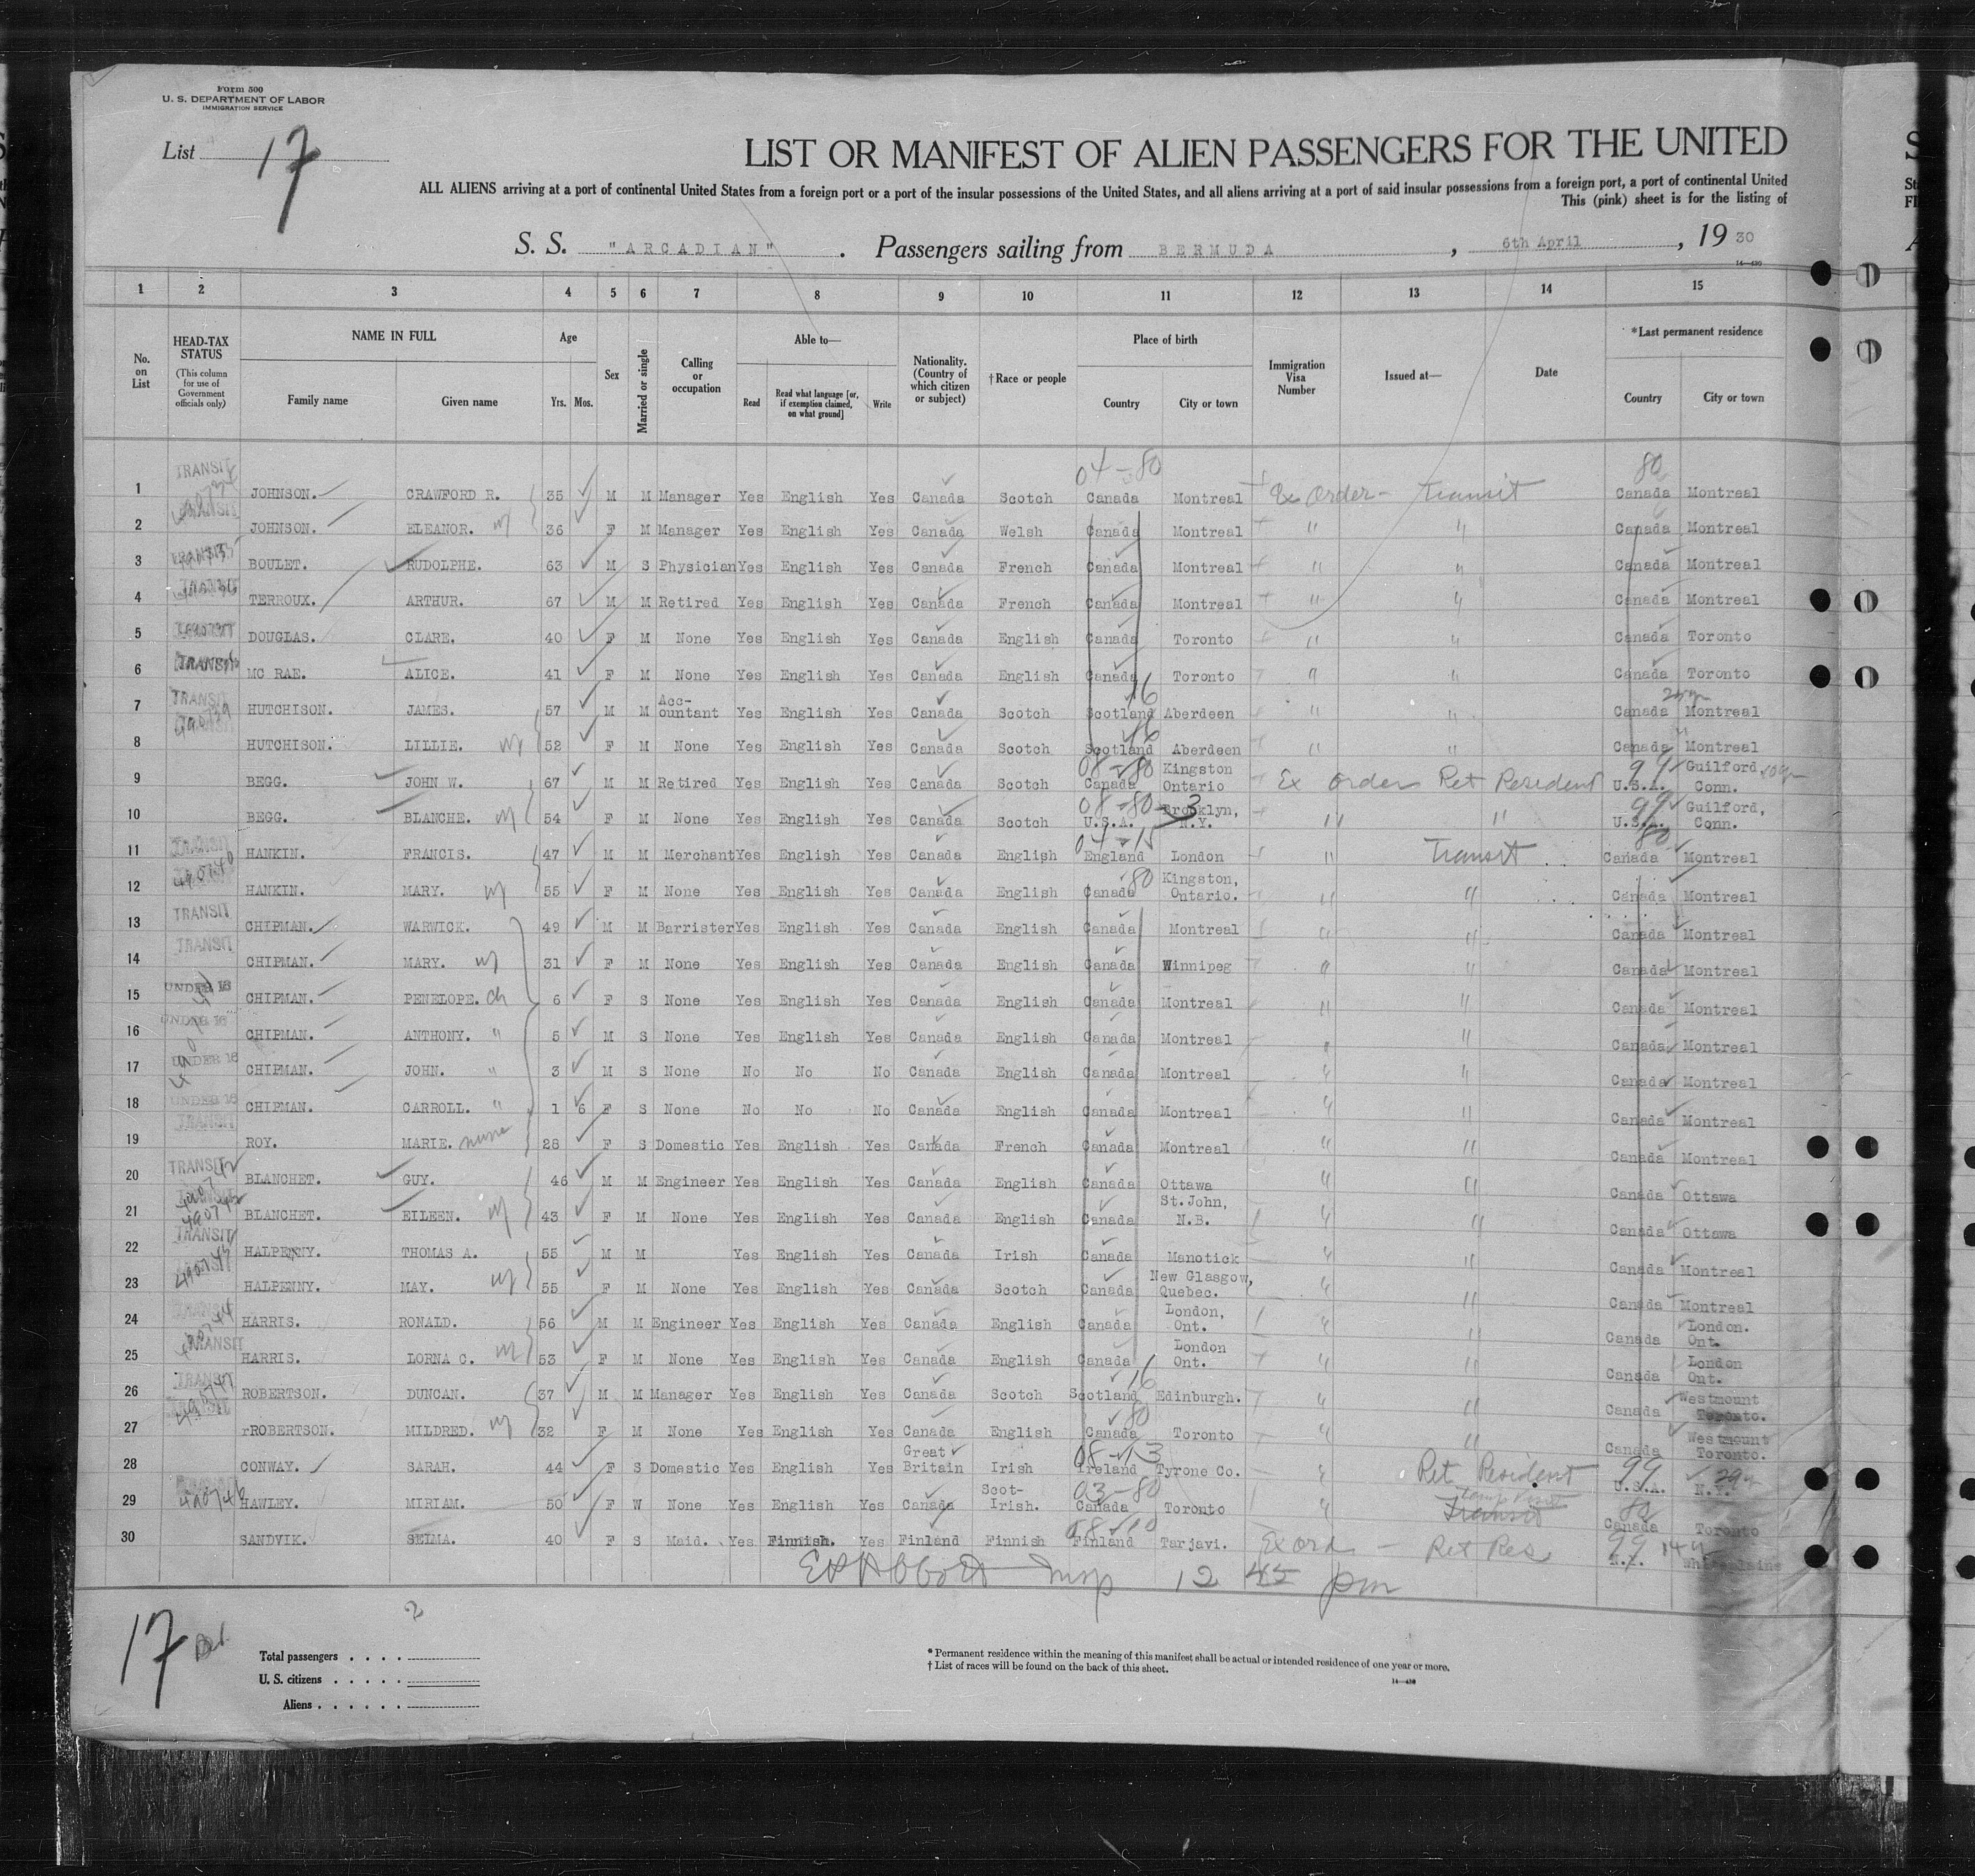 Form 500
U. S. DEPARTMENT OF LABOR
IMMIGRATION SERVICE
List 17
LIST OR MANIFEST OF ALIEN PASSENGERS FOR THE UNITED
ALL ALIENS arriving at a port of continental United States from a foreign port or a port of the insular possessions of the United States, and all aliens arriving at a port of said insular possessions from a foreign port, a port of continental United
This (pink) sheet is for the listing of
S. S. "ARCADIAN" . Passengers sailing from BERMUDA , 6th April , 19 30
14—430
1 2 3 4 5 6 7 8 9 10 11 12 13 14 15
No. on List
HEAD-TAX STATUS (This column for use of Government officials only)
NAME IN FULL Family name Given name
Age Yrs. Mos.
Sex
Married or single
Calling or occupation
Able to— Read Read what language [or, if exemption claimed, on what ground] Write
Nationality. (Country of which citizen or subject)
†Race or people
Place of birth Country City or town
Immigration Visa Number
Issued at—
Date
*Last permanent residence Country City or town
04-80 80
1 TRANSIT JOHNSON. CRAWFORD R. 35 M M Manager Yes English Yes Canada Scotch Canada Montreal Ex Order - Transit Canada Montreal
2 JOHNSON. ELEANOR. W 36 F M Manager Yes English Yes Canada Welsh Canada Montreal " " Canada Montreal
3 BOULET. RUDOLPHE. 63 M S Physician Yes English Yes Canada French Canada Montreal " " Canada Montreal
4 TERROUX. ARTHUR. 67 M M Retired Yes English Yes Canada French Canada Montreal " " Canada Montreal
5 DOUGLAS. CLARE. 40 F M None Yes English Yes Canada English Canada Toronto " " Canada Toronto
6 TRANSIT MC RAE. ALICE. 41 F M None Yes English Yes Canada English Canada Toronto " " Canada Toronto
7 TRANSIT HUTCHISON. JAMES. 57 M M Acc-ountant Yes English Yes Canada Scotch Scotland 16 Aberdeen " " Canada Montreal
8 HUTCHISON. LILLIE. W 52 F M None Yes English Yes Canada Scotch Scotland 16 Aberdeen " " Canada Montreal
9 BEGG. JOHN W. 67 M M Retired Yes English Yes Canada Scotch 08-80 Canada Kingston Ontario Ex Order Ret Resident 99 U.S.A. Guilford Conn.
10 BEGG. BLANCHE. W 54 F M None Yes English Yes Canada Scotch 08-80 U.S.A. Brooklyn, N.Y. " " 99 U.S.A. Guilford, Conn.
11 HANKIN. FRANCIS. 47 M M Merchant Yes English Yes Canada English 04-15 England London " Transit 80 Canada Montreal
12 490740 HANKIN. MARY. W 55 F M None Yes English Yes Canada English Canada 80 Kingston, Ontario. " " Canada Montreal
13 TRANSIT CHIPMAN. WARWICK. 49 M M Barrister Yes English Yes Canada English Canada Montreal " " Canada Montreal
14 TRANSIT CHIPMAN. MARY. W 31 F M None Yes English Yes Canada English Canada Winnipeg " " Canada Montreal
15 UNDER 16 CHIPMAN. PENELOPE. Ch 6 F S None Yes English Yes Canada English Canada Montreal " " Canada Montreal
16 UNDER 16 CHIPMAN. ANTHONY. " 5 M S None Yes English Yes Canada English Canada Montreal " " Canada Montreal
17 UNDER 16 CHIPMAN. JOHN. " 3 M S None No No No Canada English Canada Montreal " " Canada Montreal
18 UNDER 16 CHIPMAN. CARROLL. " 1 6 F S None No No No Canada English Canada Montreal " " Canada Montreal
19 TRANSIT ROY. MARIE. nurse 28 F S Domestic Yes English Yes Canada French Canada Montreal " " Canada Montreal
20 TRANSIT BLANCHET. GUY. 46 M M Engineer Yes English Yes Canada English Canada Ottawa " " Canada Ottawa
21 BLANCHET. EILEEN. W 43 F M None Yes English Yes Canada English Canada St. John, N.B. " " Canada Ottawa
22 TRANSIT HALPENNY. THOMAS A. 55 M M Yes English Yes Canada Irish Canada Manotick " " Canada Montreal
23 HALPENNY. MAY. W 55 F M None Yes English Yes Canada Scotch Canada New Glasgow, Quebec. " " Canada Montreal
24 HARRIS. RONALD. 56 M M Engineer Yes English Yes Canada English Canada London, Ont. " " Canada London. Ont.
25 TRANSIT HARRIS. LORNA C. W 53 F M None Yes English Yes Canada English Canada London Ont. " " Canada London Ont.
26 TRANSIT ROBERTSON. DUNCAN. 37 M M Manager Yes English Yes Canada Scotch Scotland 16 Edinburgh. " " Canada Westmount Toronto.
27 rROBERTSON. MILDRED. W 32 F M None Yes English Yes Canada English Canada 80 Toronto " " Canada Westmount Toronto.
28 CONWAY. SARAH. 44 F S Domestic Yes English Yes Great Britain Irish 08-13 Ireland Tyrone Co. " Ret Resident 99 U.S.A. N.Y.
29 490746 HAWLEY. MIRIAM. 50 F W None Yes English Yes Canada Scot-Irish. 03-80 Canada Toronto " Transit 80 Canada Toronto
30 SANDVIK. SELMA. 40 F S Maid. Yes Finnish. Yes Finland Finnish Finland Tarjavi. Ex ord - Ret Res 99 N.Y.
Insp 12 45 pm
17
2
Total passengers
U. S. citizens
Aliens
* Permanent residence within the meaning of this manifest shall be actual or intended residence of one year or more.
† List of races will be found on the back of this sheet.
14—430